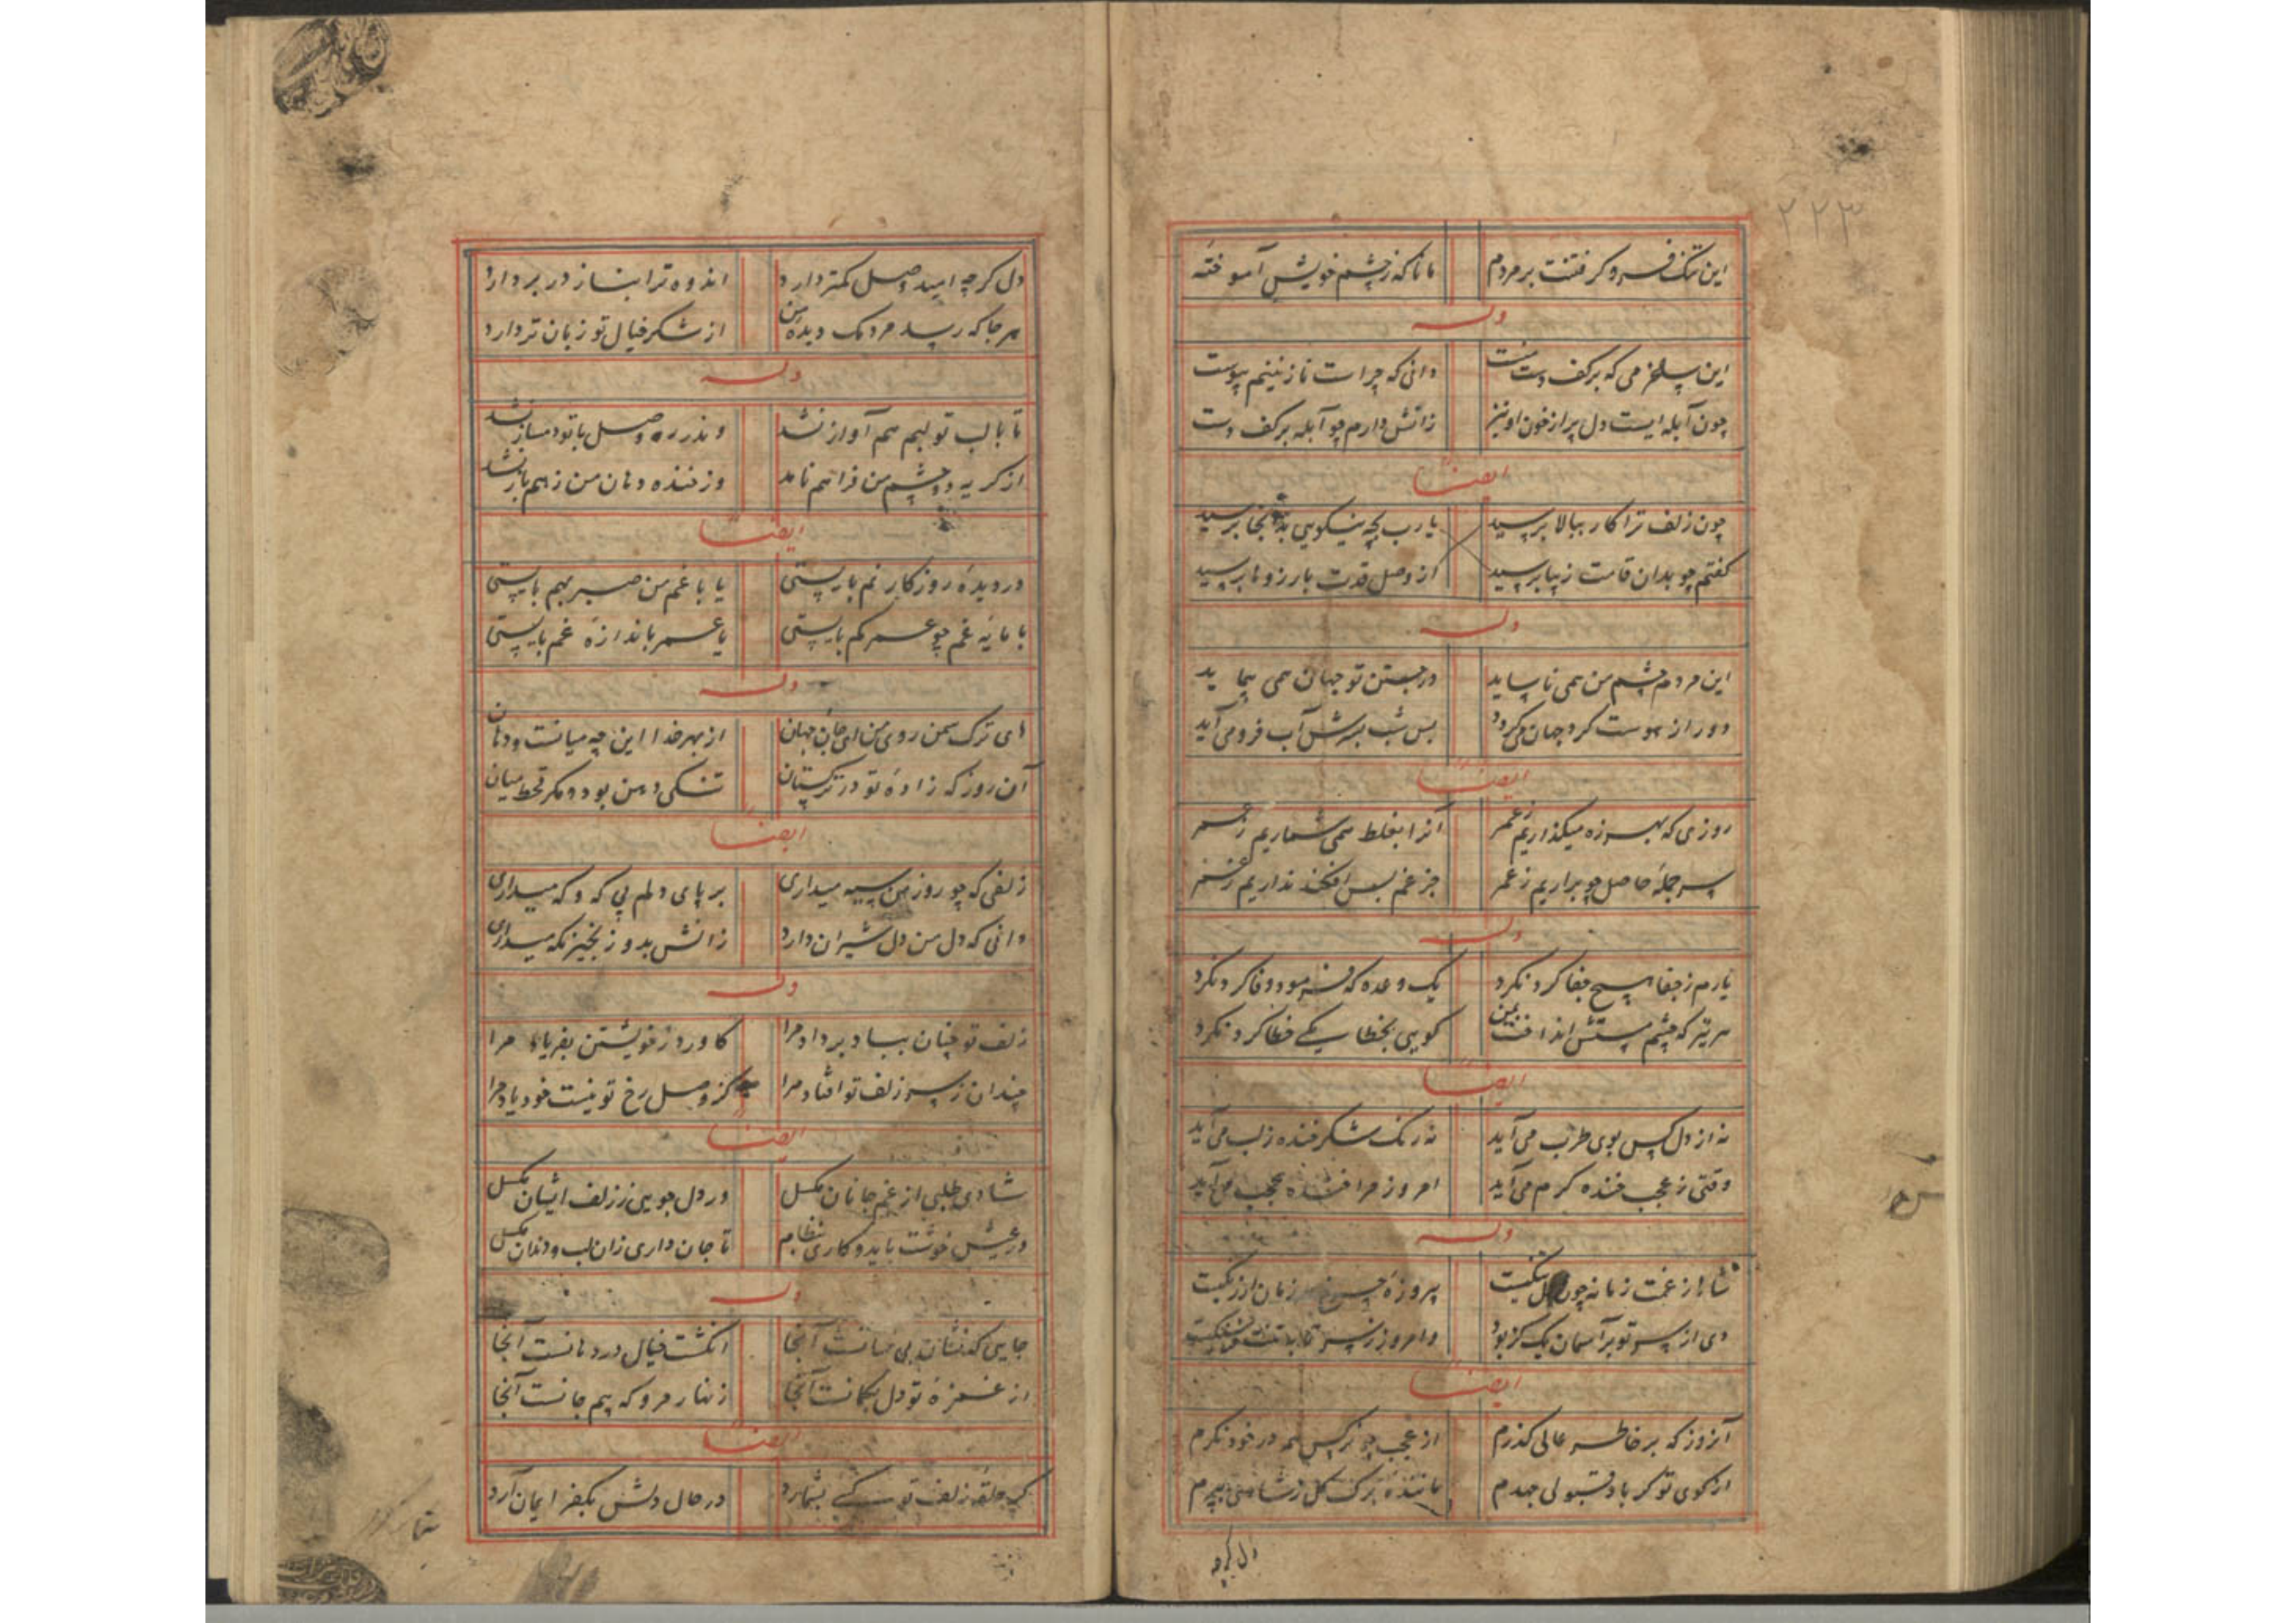 ۲۲۳
این تنک فرو کرفتنت بر مردم مانا که ز چشم خویش آموخته
وله
این پلخر می که بر کف دست منست دانی که چراست نازنینم پیوست
چون آبله ایست دل پر از خون او نیز زاتش دارم چو آبله بر کف دست
ایضا
چون زلف ترا کار ببالا برسید یا رب بچه نیکویی بدینجا برسید
کفتم چو بدان قامت زیبا برسید از وصل قدت بارزوها برسید
وله
این مردم چشم من همی ناساید در جستن تو جهان همی پیماید
دور از هوست کرد جهان می کردد بس شب بسرش آب فرو می آید
ایضا
روزی که بهرزه میکذاریم ز عمر آنرا بغلط همی شماریم ز عمر
سر جمله حاصل چو براریم ز عمر جز غم بس افکند نداریم ز عمر
وله
یارم ز جفا هیچ جفا کرد نکرد یک وعده که فرمود وفا کرد نکرد
هر تیر که چشم مستش انداخت ببین کویی بخطا یکی خطا کرد نکرد
ایضا
نه از دل کس بوی طرب می آید نه رنک شکر خنده ز لب می آید
وقتی ز عجب خنده کرم می آید امروز مرا خنده عجب می آید
وله
شاها ز غمت زمانه چون بنکیست پیروزه چرخ زمان ازرنکیست
دی از سر تو بر آسمان یک کز بود وامروز ز سر تا
ایضا
آنروز که بر خاطر عالی کذرم از عجب چو نرکس همه در خود نکرم
از کوی تو کر باد قبولی جهدم ماننده برک کل ز شادی بپرم
دل کرچه
دل کرچه امید وصل کمتر دارد اندوه ترا بناز در بر دارد
هر جا که رسد مردمک دیده من از شکر خیال تو زبان تر دارد
وله
تا با لب تو لبم هم آواز نشد وندر ره وصل با تو دمساز نشد
از کریه دو چشم من فراهم نامد وز خنده دهان من ز هم باز نشد
ایضا
در دیده روزکار نم بایستی یا با غم من صبر بهم بایستی
یا مایه غم چو عمر کم بایستی یا عمر باندازه غم بایستی
وله
ای ترک سمن روی من ای جان جهان از بهر خدا این چه میانست و دهان
آن روز که زاده تو در ترکستان تنکی دهن بود و مکر قحط میان
ایضا
زلفی که چو روز من سیه میداری بر پای دلم پی که و که میداری
دانی که دل من دل شیران دارد زانش بدو زنجیر نکه میداری
وله
زلف تو چنان بباد بر داد مرا کاورد ز خویشتن بفریاد مرا
چندان ز سر زلف تو افتاد مرا کز وصل رخ تو نیست خود یاد مرا
ایضا
شادی طلبی از غم جانان مکسل ور دل جویی ز زلف ایشان مکسل
ور عیش خوشت باید و کاری بنظام تا جان داری زان لب و دندان مکسل
وله
جایی که نشان بی نشانست آنجا انکشت خیال در دهانست آنجا
از غمزه تو دل بکمانست آنجا زنهار مرو که بیم جانست آنجا
ایضا
کر حلقه زلف تو کسی بشمارد در حال دلش بکفر ایمان آرد